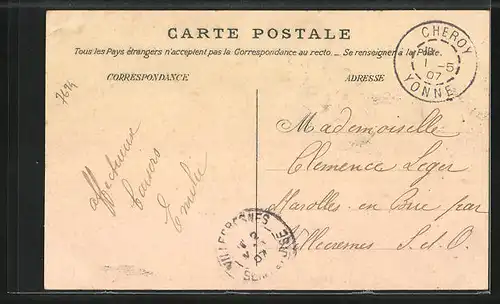 CARTE POSTALE
Tous les Pays étrangers n'acceptent pas la Correspondance au recto. _ Se renseigner à la Poste.
CORRESPONDANCE
ADRESSE
CHEROY
1 -5
07
YONNE
Affectueux
baisers
Emilie
Mademoiselle
Clemence Leger
Marolles en Brie par
Villecresnes S. et O.
VILLECRESNES
2
07
SEINE